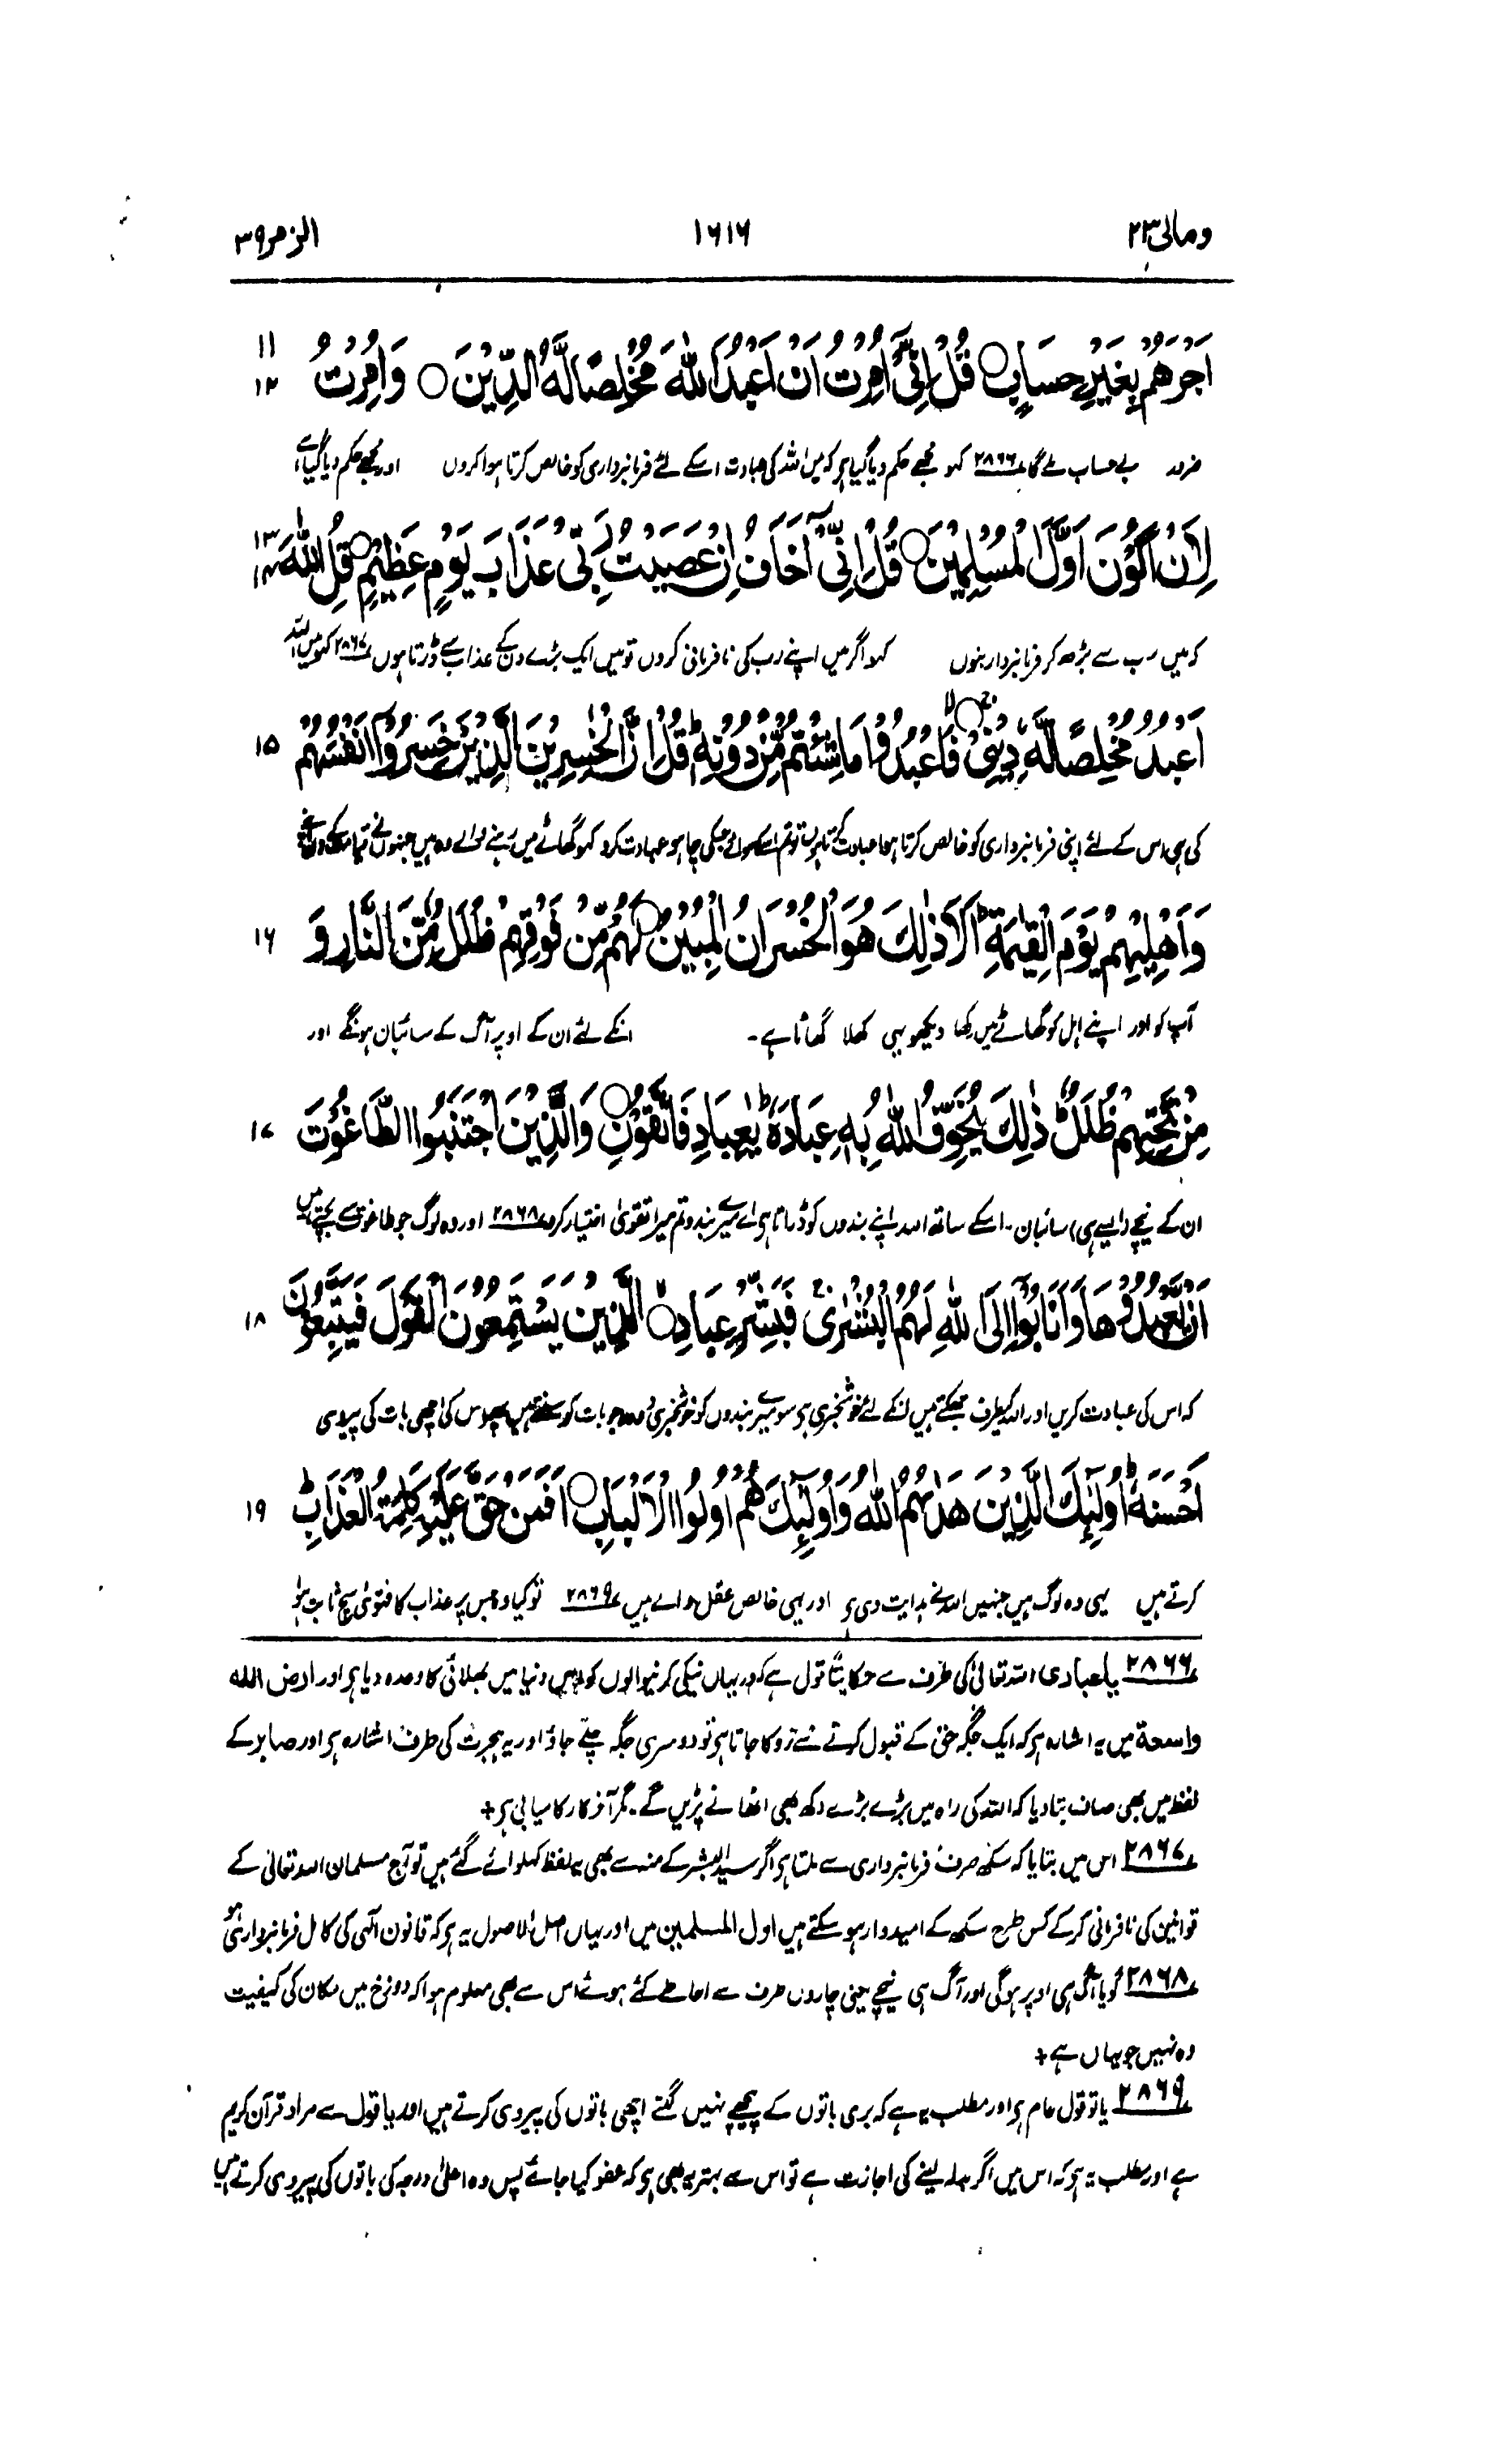 ومالی ۲۳
۱۶۱۶
الزمر ۳۹
اَجْرَهُمْ بِغَیْرِ حِسَابٍ ○ قُلْ اِنِّیْۤ اُمِرْتُ اَنْ اَعْبُدَ اللّٰهَ مُخْلِصًا لَّهُ الدِّیْنَ ○ وَاُمِرْتُ ۱۱ ۱۲
بے حساب ملے گا ۲۸۶۶ کہو مجھے حکم دیا گیا ہے کہ میں اللہ کی عبادت اسکے لئے فرمانبرداری کو خالص کرتا ہوا کروں اور مجھے حکم دیا گیا ہے
لِاَنْ اَكُوْنَ اَوَّلَ الْمُسْلِمِیْنَ ○ قُلْ اِنِّیْۤ اَخَافُ اِنْ عَصَیْتُ رَبِّیْ عَذَابَ یَوْمٍ عَظِیْمٍ ○ قُلِ اللّٰهَ ۱۳ ۱۴
کہ میں سب سے بڑھ کر فرمانبردار بنوں کہو اگر میں اپنے رب کی نافرمانی کروں تو میں ایک بڑے دن کے عذاب سے ڈرتا ہوں ۲۸۶۷ کہو میں اللہ
اَعْبُدُ مُخْلِصًا لَّهٗ دِیْنِیْ ○ فَاعْبُدُوْا مَا شِئْتُمْ مِّنْ دُوْنِهٖ ؕ قُلْ اِنَّ الْخٰسِرِیْنَ الَّذِیْنَ خَسِرُوْۤا اَنْفُسَهُمْ ۱۵
کی ہی اس کے لئے اپنی فرمانبرداری کو خالص کرتا ہوا عبادت کرتا ہوں تو تم اسکے سوائے جسکی چاہو عبادت کرو کہو گھاٹے میں رہنے والے وہ ہیں جنہوں نے قیامت کے دن اپنے
وَاَهْلِیْهِمْ یَوْمَ الْقِیٰمَةِ ؕ اَلَا ذٰلِكَ هُوَ الْخُسْرَانُ الْمُبِیْنُ ○ لَهُمْ مِّنْ فَوْقِهِمْ ظُلَلٌ مِّنَ النَّارِ وَ ۱۶
آپ کو اور اپنے اہل کو گھاٹے میں رکھا دیکھو یہی کھلا گھاٹا ہے۔ انکے لئے ان کے اوپر آگ کے سائبان ہونگے اور
مِنْ تَحْتِهِمْ ظُلَلٌ ؕ ذٰلِكَ یُخَوِّفُ اللّٰهُ بِهٖ عِبَادَهٗ ؕ یٰعِبَادِ فَاتَّقُوْنِ ○ وَالَّذِیْنَ اجْتَنَبُوا الطَّاغُوْتَ ۱۷
ان کے نیچے (ایسے ہی) سائبان۔ اسکے ساتھ اللہ اپنے بندوں کو ڈراتا ہی اے میرے بندو تم میرا تقویٰ اختیار کرو ۲۸۶۸ اور وہ لوگ جو طاغوت سے بچتے ہیں
اَنْ یَّعْبُدُوْهَا وَاَنَابُوْۤا اِلَی اللّٰهِ لَهُمُ الْبُشْرٰی ۚ فَبَشِّرْ عِبَادِ ○ الَّذِیْنَ یَسْتَمِعُوْنَ الْقَوْلَ فَیَتَّبِعُوْنَ ۱۸
کہ اس کی عبادت کریں اور اللہ کیطرف جھکتے ہیں انکے لئے خوشخبری ہو سو میرے بندوں کو خوشخبری دو وہ جو بات کو سنتے ہیں پھر اس کی اچھی بات کی پیروی
اَحْسَنَهٗ ؕ اُولٰٓئِكَ الَّذِیْنَ هَدٰىهُمُ اللّٰهُ وَاُولٰٓئِكَ هُمْ اُولُوا الْاَلْبَابِ ○ اَفَمَنْ حَقَّ عَلَیْهِ كَلِمَةُ الْعَذَابِ ؕ ۱۹
کرتے ہیں یہی وہ لوگ ہیں جنہیں اللہ نے ہدایت دی ہے اور یہی خالص عقل والے ہیں ۲۸۶۹ تو کیا وہ جس پر عذاب کا فتویٰ سچ ثابت ہوا
۲۸۶۶ یٰعبادی اللہ تعالیٰ کی طرف سے حکایتاً قول ہے کہ یہاں نیکی کرنیوالوں کو دنیا میں بھلائی کا وعدہ دیا ہی اور ارض الله
واسعة میں یہ اشارہ ہی کہ ایک جگہ حق کے قبول کرنے سے روکا جاتا ہی تو دوسری جگہ چلے جاؤ اور یہ ہجرت کی طرف اشارہ ہی اور صابر کے
لفظ میں بھی صاف بتا دیا کہ اللہ کی راہ میں بڑے بڑے دکھ بھی اٹھانے پڑیں گے۔ مگر آخر کار کامیابی ہی+
۲۸۶۷ اس میں بتایا کہ سکھ صرف فرمانبرداری سے ملتا ہی اگر سید البشر کے منہ سے بھی یہ لفظ کہلوائے گئے ہیں تو آج مسلمان اللہ تعالیٰ کے
قوانین کی نافرمانی کرکے کس طرح سکھ کے امیدوار ہو سکتے ہیں اول المسلمین میں اور یہاں اصل الاصول یہ ہی کہ قانون الٰہی کی کامل فرمانبرداری ہو
۲۸۶۸ گویا آگ ہی اوپر ہوگی اور آگ ہی نیچے یعنی چاروں طرف سے احاطہ کئے ہوئے اس سے بھی معلوم ہوا کہ دوزخ میں مکان کی کیفیت
وہ نہیں جو یہاں ہے+
۲۸۶۹ یا تو قول عام ہی اور مطلب یہ ہے کہ بری باتوں کے پیچھے نہیں لگتے اچھی باتوں کی پیروی کرتے ہیں اور یا قول سے مراد قرآن کریم
ہے اور مطلب یہ ہی کہ اس میں اگر بدلہ لینے کی اجازت ہے تو اس سے بہتر یہ بھی ہی کہ عفو کیا جائے پس وہ اعلیٰ درجہ کی باتوں کی پیروی کرتے ہیں